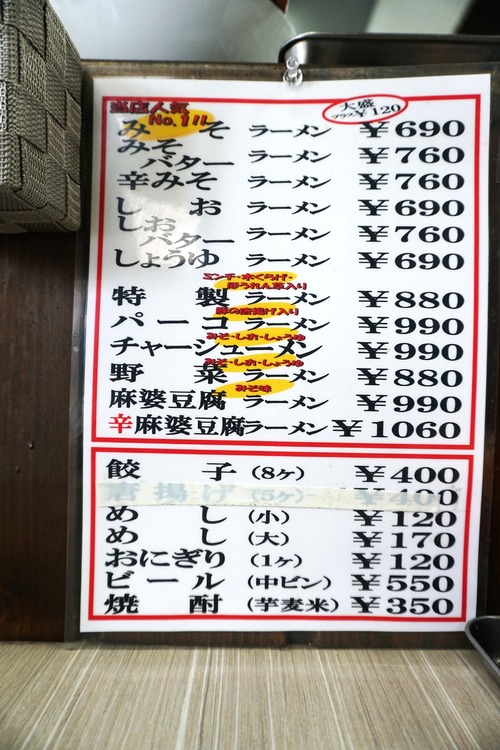 当店人気
No.1!!
大盛
プラス¥120
みそ ラーメン ¥690
みそバター ラーメン ¥760
辛みそ ラーメン ¥760
しお ラーメン ¥690
しおバター ラーメン ¥760
しょうゆ ラーメン ¥690
ミンチ・木くらげ・
ほうれん草入り
特製 ラーメン ¥880
豚の唐揚げ入り
パーコーラーメン ¥990
みそ・しお・しょうゆ
チャーシューメン ¥990
みそ・しお・しょうゆ
野菜 ラーメン ¥880
みそ味
麻婆豆腐 ラーメン ¥990
辛麻婆豆腐ラーメン ¥1060
餃子 (8ヶ) ¥400
唐揚げ (5ヶ) ¥400
めし (小) ¥120
めし (大) ¥170
おにぎり (1ヶ) ¥120
ビール (中ビン) ¥550
焼酎 (芋麦米) ¥350